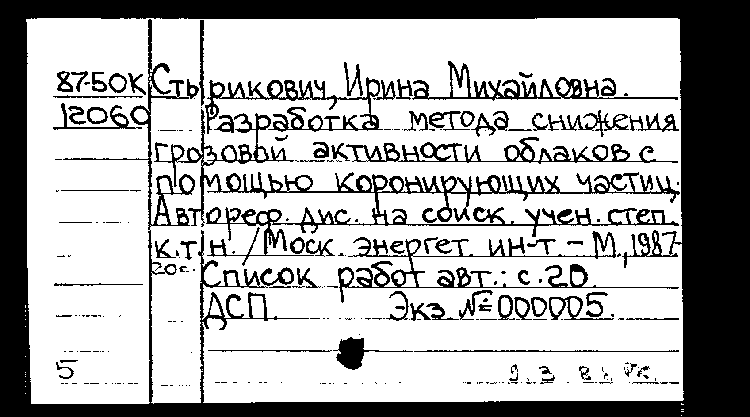 87-50К Стырикович, Ирина Михайловна.
12060 Разработка метода снижения
грозовой активности облаков с
помощью коронирующих частиц.
Автореф. дис. на соиск. учен. степ.
к.т.н. / Моск. энергет. ин-т. - М., 1987-
20с.
Список работ авт.: с. 20.
ДСП. Экз №000005.
5